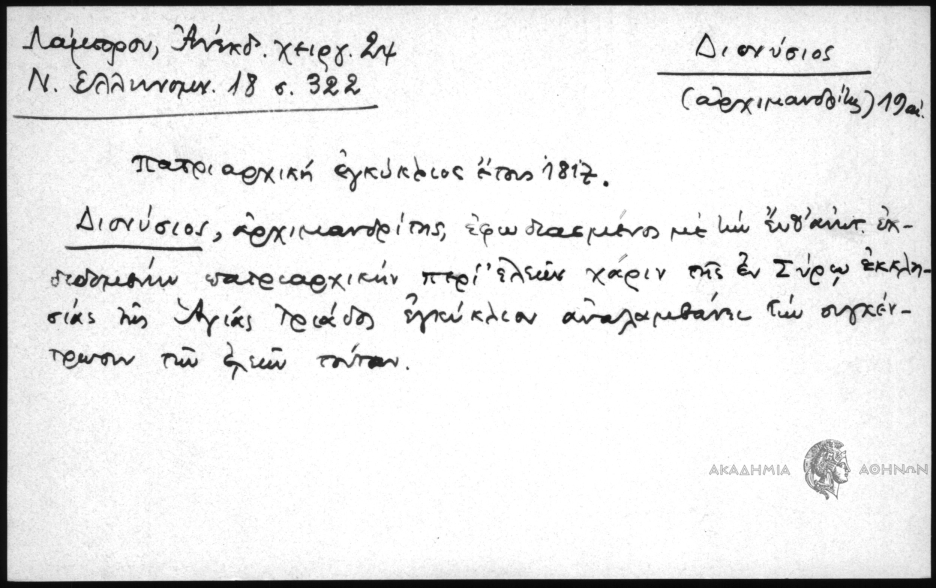 Λάμπρου, Ἀνέκδ. χειργ. 24
Ν. Ἑλληνομν. 18 σ. 322
Διονύσιος
(ἀρχιμανδρίτης) 19 αἰ.
Πατριαρχική ἐγκύκλιος ἔτους 1817.
Διονύσιος, ἀρχιμανδρίτης, ἐφωδιασμένος μέ τήν ἐκ-
διδομένην πατριαρχικήν περί ἐλεῶν χάριν τῆς ἐν Σύρῳ ἐκκλη-
σίας τῆς Ἁγίας Τριάδος ἐγκύκλιον ἀναλαμβάνει τήν συγκέν-
τρωσιν τῶν ἐλεῶν τούτων.
ΑΚΑΔΗΜΙΑ ΑΘΗΝΩΝ